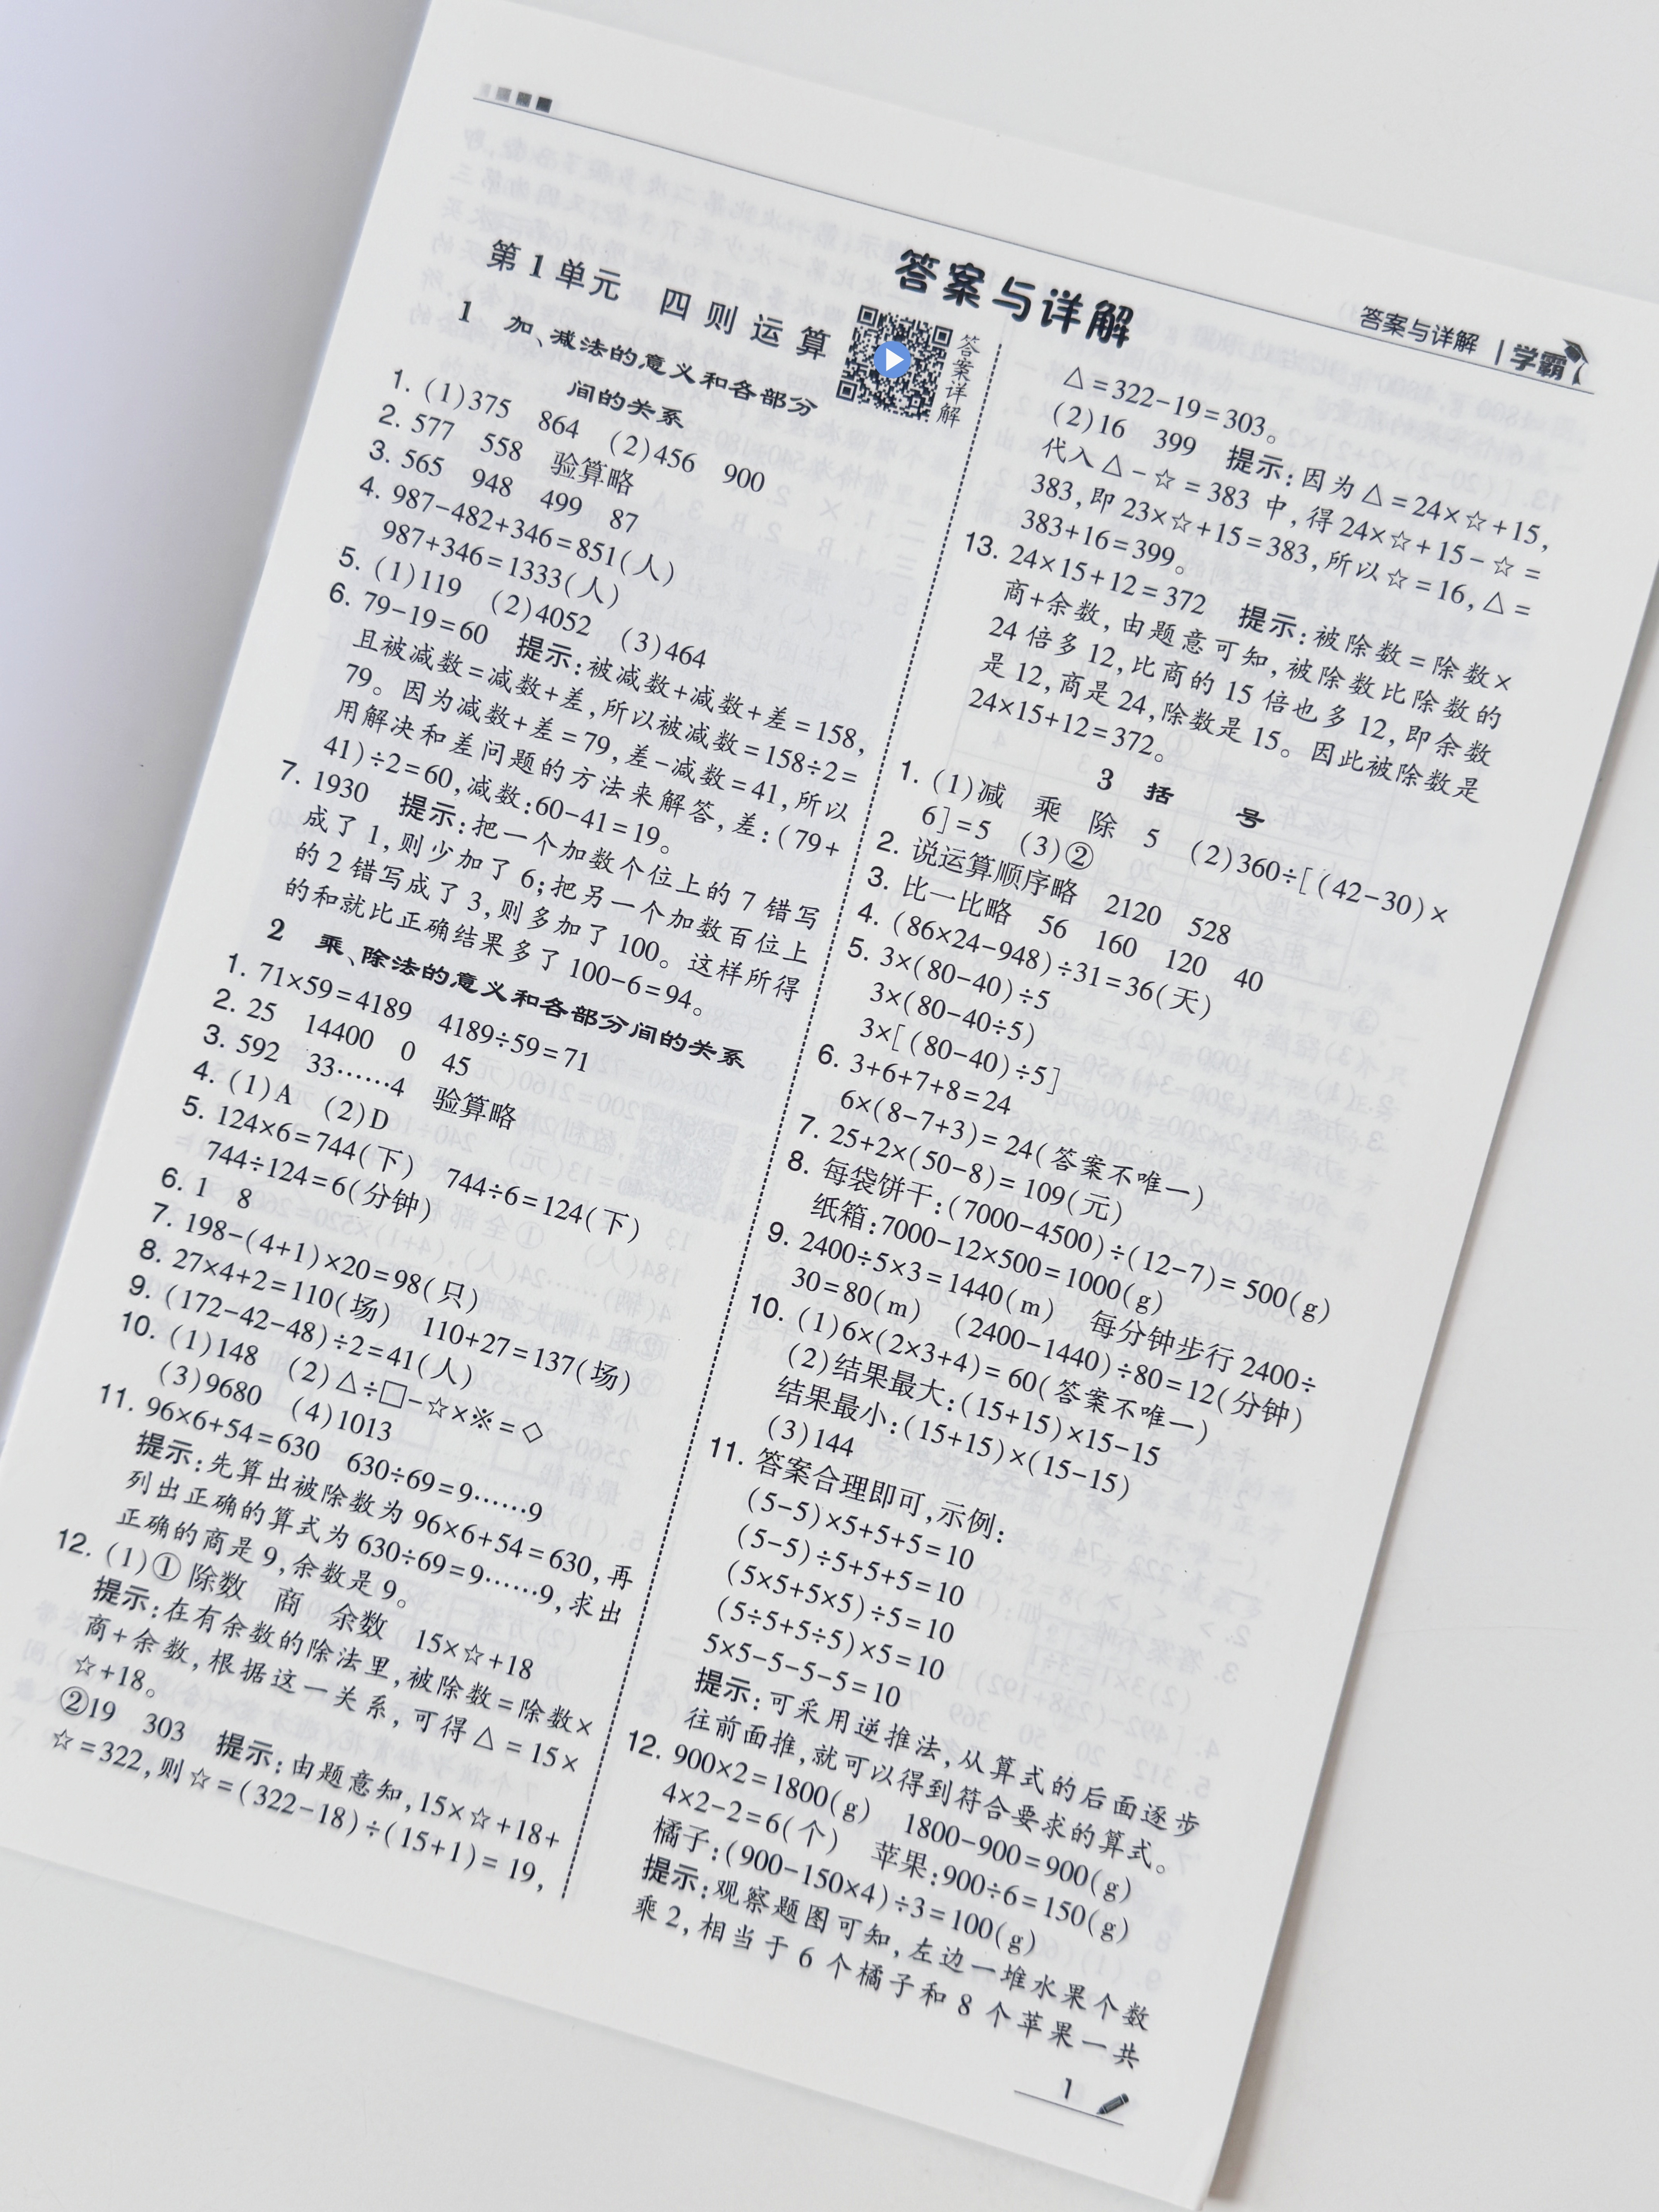 答案与详解 | 学霸
答案与详解
第1单元 四则运算
答案详解
1 加、减法的意义和各部分
间的关系
1. (1)375 864 (2)456 900
2. 577 558 验算略
3. 565 948 499 87
4. 987-482+346=851(人)
987+346=1333(人)
5. (1)119 (2)4052 (3)464
6. 79-19=60 提示:被减数+减数+差=158,
且被减数=减数+差,所以被减数=158÷2=
79。因为减数+差=79,差-减数=41,所以
用解决和差问题的方法来解答,差:(79+
41)÷2=60,减数:60-41=19。
7. 1930 提示:把一个加数个位上的7错写
成了1,则少加了6;把另一个加数百位上
的2错写成了3,则多加了100。这样所得
的和就比正确结果多了100-6=94。
2 乘、除法的意义和各部分间的关系
1. 71×59=4189 4189÷59=71
2. 25 14400 0 45
3. 592 33……4 验算略
4. (1)A (2)D
5. 124×6=744(下) 744÷6=124(下)
744÷124=6(分钟)
6. 1 8
7. 198-(4+1)×20=98(只)
8. 27×4+2=110(场) 110+27=137(场)
9. (172-42-48)÷2=41(人)
10. (1)148 (2)△÷□-☆×※=◇
(3)9680 (4)1013
11. 96×6+54=630 630÷69=9……9
提示:先算出被除数为96×6+54=630,再
列出正确的算式为630÷69=9……9,求出
正确的商是9,余数是9。
12. (1)①除数 商 余数 15×☆+18
提示:在有余数的除法里,被除数=除数×
商+余数,根据这一关系,可得△=15×
☆+18。
②19 303 提示:由题意知,15×☆+18+
☆=322,则☆=(322-18)÷(15+1)=19,
△=322-19=303。
(2)16 399 提示:因为△=24×☆+15,
代入△-☆=383中,得24×☆+15-☆=
383,即23×☆+15=383,所以☆=16,△=
383+16=399。
13. 24×15+12=372 提示:被除数=除数×
商+余数,由题意可知,被除数比除数的
24倍多12,比商的15倍也多12,即余数
是12,商是24,除数是15。因此被除数是
24×15+12=372。
3 括 号
1. (1)减 乘 除 5 (2)360÷[(42-30)×
6]=5 (3)②
2. 说运算顺序略 2120 528
3. 比一比略 56 160 120 40
4. (86×24-948)÷31=36(天)
5. 3×(80-40)÷5
3×(80-40÷5)
3×[(80-40)÷5]
6. 3+6+7+8=24
6×(8-7+3)=24(答案不唯一)
7. 25+2×(50-8)=109(元)
8. 每袋饼干:(7000-4500)÷(12-7)=500(g)
纸箱:7000-12×500=1000(g)
9. 2400÷5×3=1440(m) 每分钟步行2400÷
30=80(m) (2400-1440)÷80=12(分钟)
10. (1)6×(2×3+4)=60(答案不唯一)
(2)结果最大:(15+15)×15-15
结果最小:(15+15)×(15-15)
(3)144
11. 答案合理即可,示例:
(5-5)×5+5+5=10
(5-5)÷5+5+5=10
(5×5+5×5)÷5=10
(5÷5+5÷5)×5=10
5×5-5-5-5=10
提示:可采用逆推法,从算式的后面逐步
往前面推,就可以得到符合要求的算式。
12. 900×2=1800(g) 1800-900=900(g)
4×2-2=6(个) 苹果:900÷6=150(g)
橘子:(900-150×4)÷3=100(g)
提示:观察题图可知,左边一堆水果个数
乘2,相当于6个橘子和8个苹果一共
1